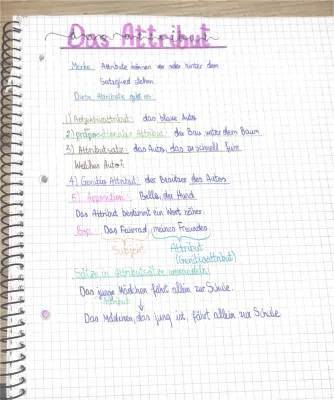 Das Attribut
Merke: Attribute können vor oder hinter dem
Satzglied stehen.
Diese Attribute gibt es:
1) Adjektivattribut: das blaue Auto
2) präpositionales Attribut: der Bau unter dem Baum
3) Attributsatz: das Auto, das zu schnell fuhr
Welches Auto?
4) Genitiv Attribut: der Besitzer des Autos
5) Apposition: Bello, der Hund
Das Attribut bestimmt ein Wort näher.
Bsp.: Das Fahrrad meines Freundes
Subjekt Attribut
(Genitivattribut)
Sätze in Attributsätze umwandeln:
Das junge Mädchen fährt allein zur Schule.
Attribut
Das Mädchen, das jung ist, fährt allein zur Schule.